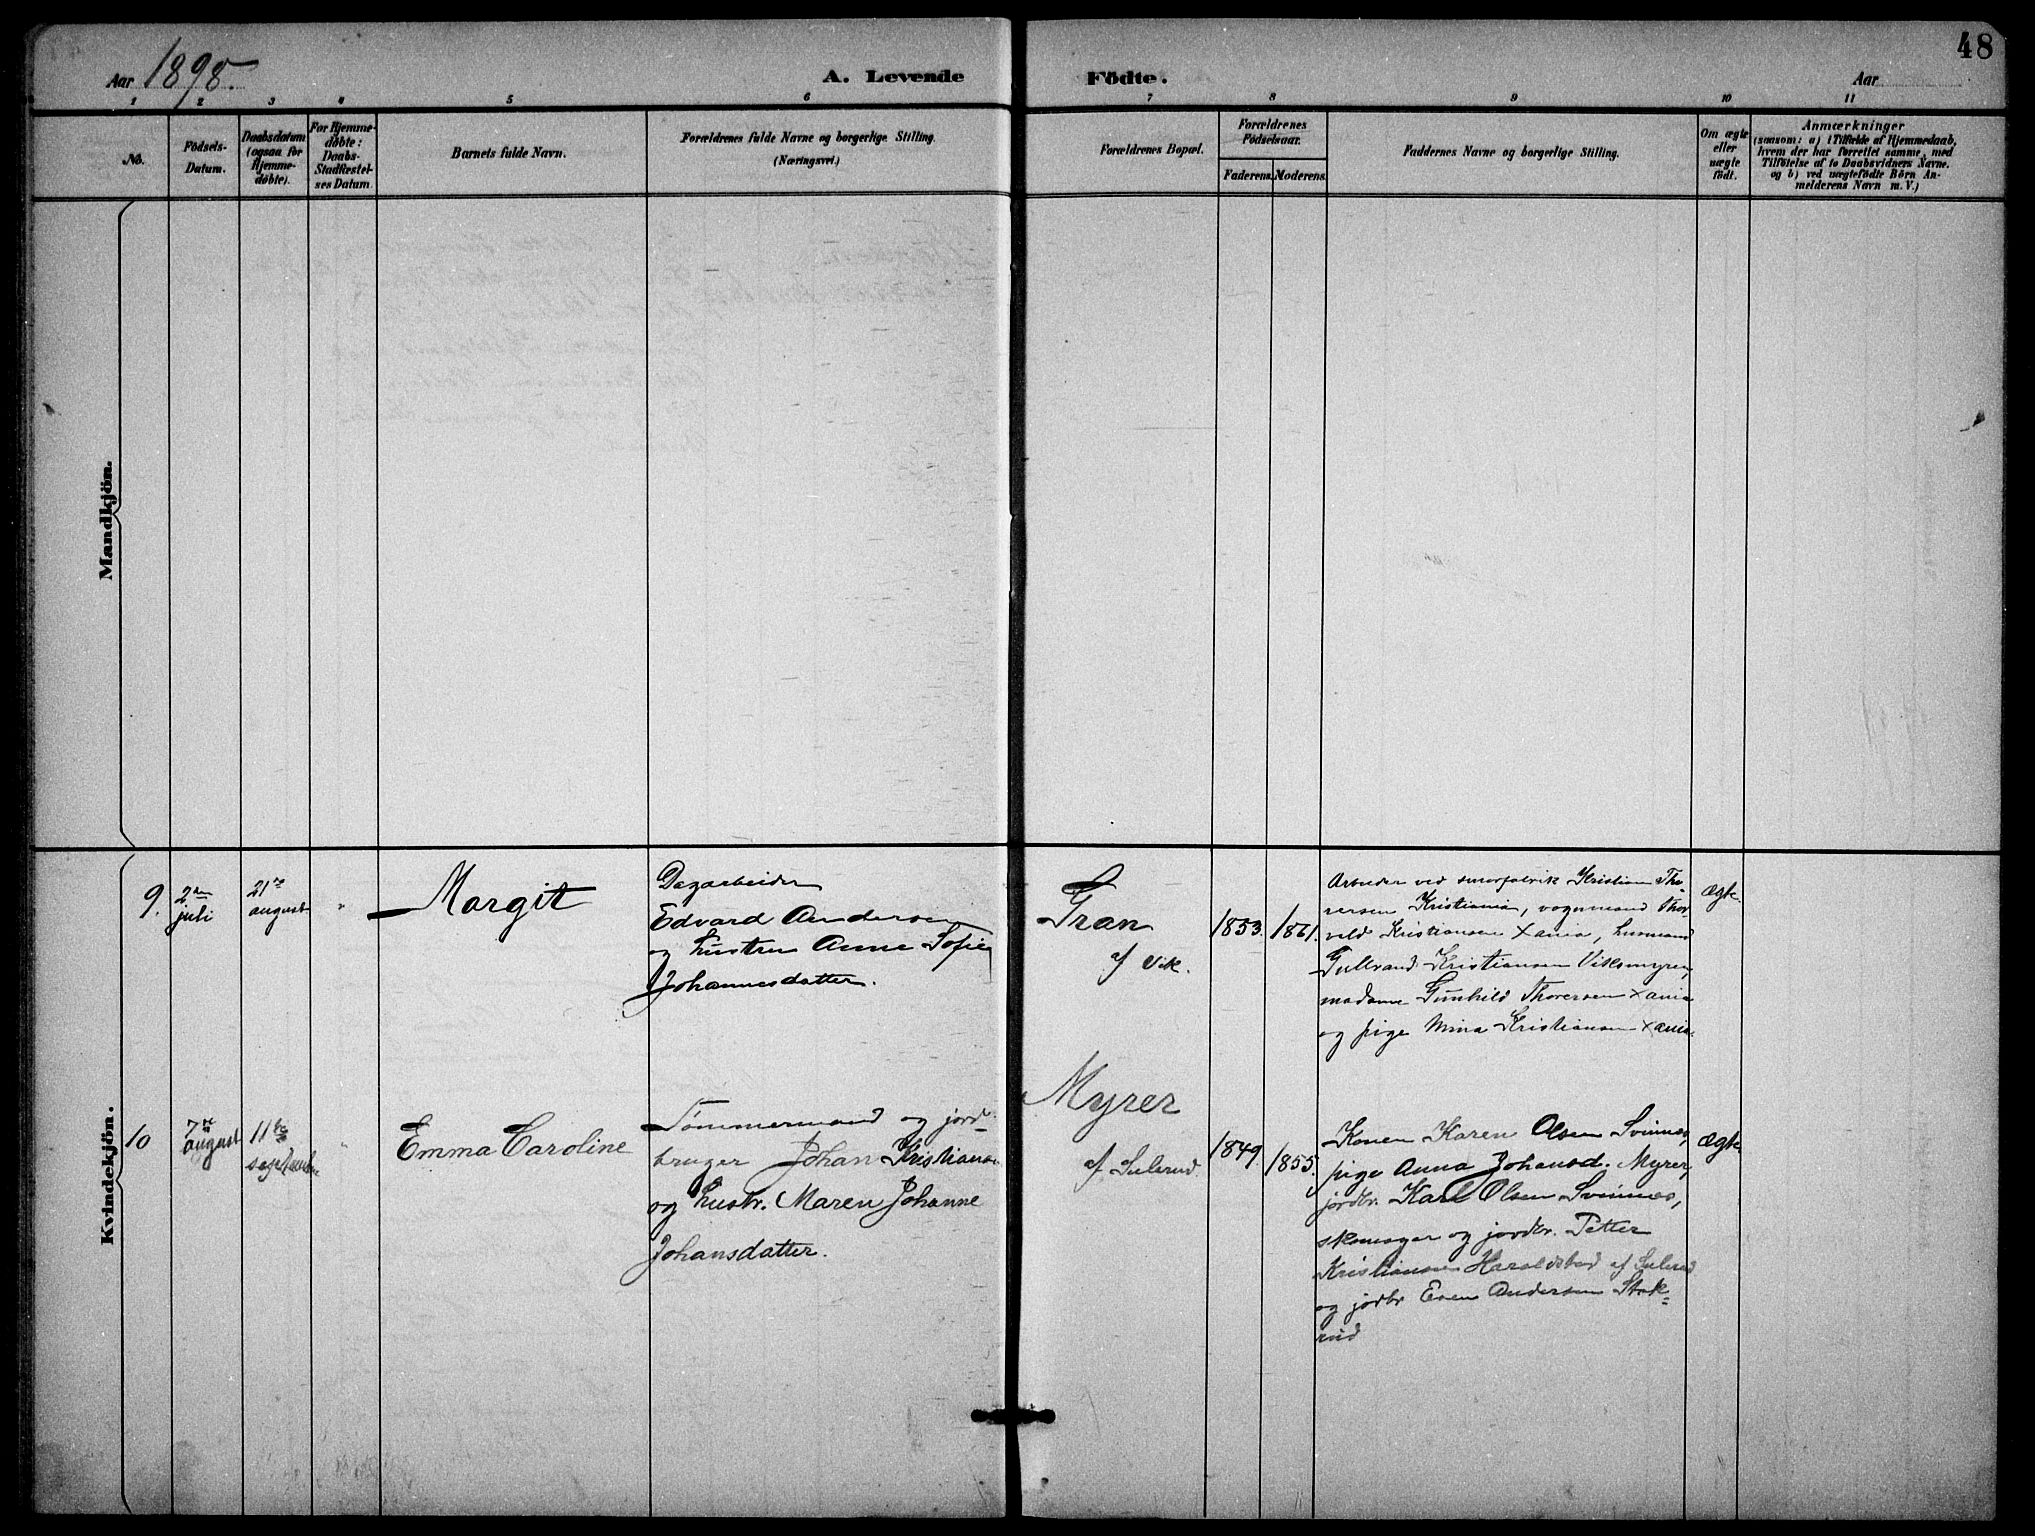 48
Aar 1898.
A. Levende Födte.
Aar
1 2 3 4 5 6 7 8 9 10 11
No.
Födsels-
Datum.
Daabsdatum
(ogsaa for
Hjemme-
döbte).
For Hjemme-
döbte:
Daabs-
Stadfæstel-
ses Datum.
Barnets fulde Navn.
Forældrenes fulde Navne og borgerlige Stilling.
(Næringsvei.)
Forældrenes Bopæl.
Forældrenes
Födselsaar.
Faderens. Moderens.
Faddernes Navne og borgerlige Stilling.
Om ægte
eller
uægte
födt.
Anmærkninger
(saasom: a) i Tilfælde af Hjemmedaab,
hvem der har forrettet samme, med
Tilföielse af to Daabsvidners Navne,
og b) ved uægtefödte Börn An-
melderens Navn m. V.)
Mandkjön.
Kvindekjön.
9.
2den
juli
21de
august
"
Margit
Dagarbeider
Edvard Andersen
og hustru Anne Sofie
Johannesdatter.
Gran
af Vik.
1853.
1861.
Arbeider ved smørfabrik Kristian Tho-
rersen Kristiania, vognmand Thor-
vald Kristiansen Xania, husmand
Gulbrand Kristiansen Viksmyren,
madame Gunhild Thorersen Xania
og pige Mina Kristiansen Xania.
Ægte.
10
7de
august
11te
september
"
Emma Caroline
Tømmermand og jord-
bruger Johan Kristiansen
og hustr. Maren Johanne
Johansdatter.
Myrer
af Sulerud
1849.
1855.
Konen Karen Olsen Svinnes,
pige Anna Johansd. Myrer,
jordbr. Karl Olsen Svinnes,
skomager og jordbr. Petter
Kristiansen Haraldstad af Sulerud
og jordbr Even Andersen Stok-
rud
Ægte.